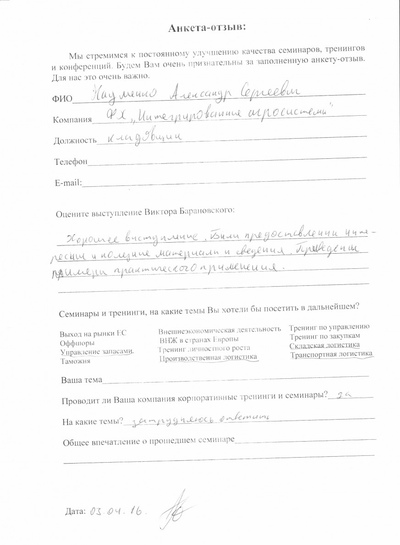 Анкета-отзыв:
Мы стремимся к постоянному улучшению качества семинаров, тренингов
и конференций. Будем Вам очень признательны за заполненную анкету-отзыв.
Для нас это очень важно.
ФИО Науменко Александр Сергеевич
Компания ГК "Интегрированные агросистемы"
Должность кладовщик
Телефон
E-mail:
Оцените выступление Виктора Барановского:
Хорошее выступление. Были предоставлены инте-
ресные и полезные материалы и сведения. Приведены
примеры практического применения.
Семинары и тренинги, на какие темы Вы хотели бы посетить в дальнейшем?
Выход на рынки ЕС Внешнеэкономическая деятельность Тренинг по управлению
Оффшоры ВНЖ в странах Европы Тренинг по закупкам
Управление запасами. Тренинг личностного роста Складская логистика
Таможня Производственная логистика Транспортная логистика
Ваша тема
Проводит ли Ваша компания корпоративные тренинги и семинары? да
На какие темы? затрудняюсь ответить
Общее впечатление о прошедшем семинаре
Дата: 03.04.16.